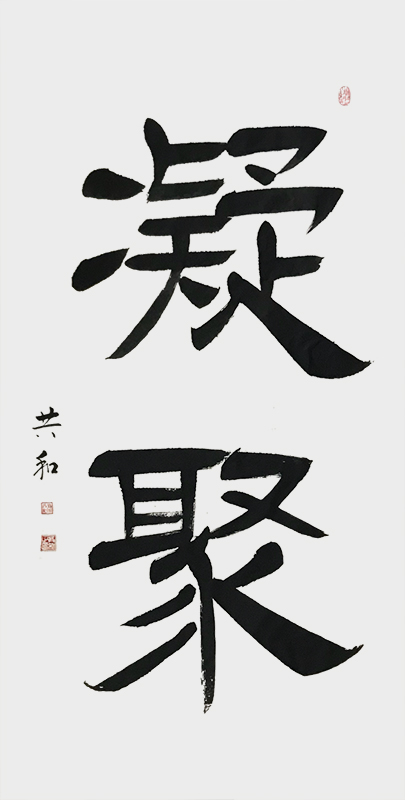 凝聚
共和